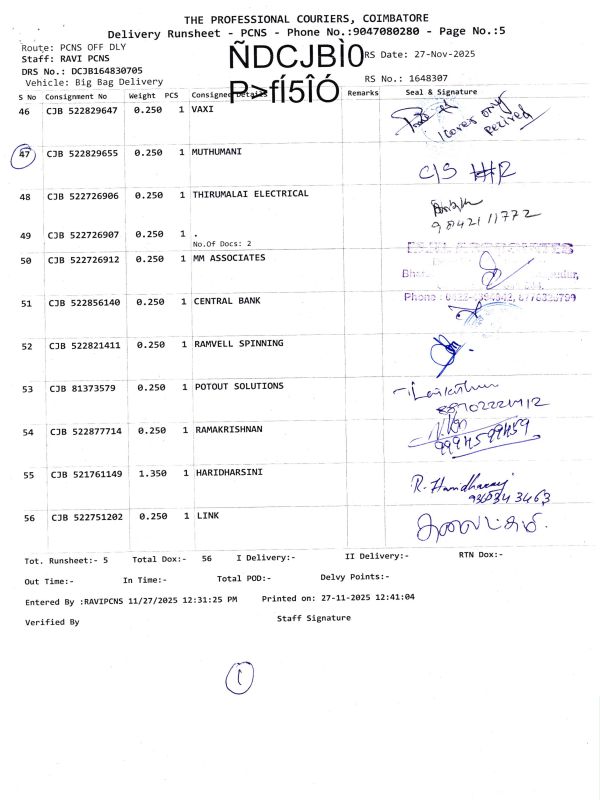 THE PROFESSIONAL COURIERS, COIMBATORE
Delivery Runsheet - PCNS - Phone No.:9047080280 - Page No.:5
Route: PCNS OFF DLY
ÑDCJBÌ0
RS Date: 27-Nov-2025
Staff: RAVI PCNS
DRS No.: DCJB164830705
P>fÍ5ÎÓ
RS No.: 1648307
Vehicle: Big Bag Delivery
S No Consignment No Weight PCS Consigned Details Remarks Seal & Signature
46 CJB 522829647 0.250 1 VAXI
47 CJB 522829655 0.250 1 MUTHUMANI
48 CJB 522726906 0.250 1 THIRUMALAI ELECTRICAL
9842111772
49 CJB 522726907 0.250 1 .
No.Of Docs: 2
50 CJB 522726912 0.250 1 MM ASSOCIATES
Phone
51 CJB 522856140 0.250 1 CENTRAL BANK
52 CJB 522821411 0.250 1 RAMVELL SPINNING
53 CJB 81373579 0.250 1 POTOUT SOLUTIONS
54 CJB 522877714 0.250 1 RAMAKRISHNAN
55 CJB 521761149 1.350 1 HARIDHARSINI
56 CJB 522751202 0.250 1 LINK
Tot. Runsheet:- 5 Total Dox:- 56 I Delivery:- II Delivery:- RTN Dox:-
Out Time:- In Time:- Total POD:- Delvy Points:-
Entered By :RAVIPCNS 11/27/2025 12:31:25 PM Printed on: 27-11-2025 12:41:04
Verified By Staff Signature
1